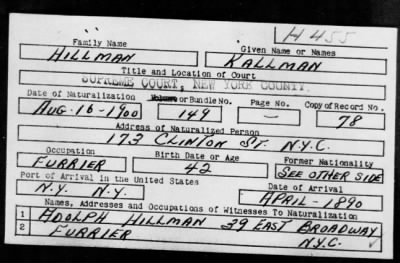 H 455
Family Name Given Name or Names
HILLMAN KALLMAN
Title and Location of Court
SUPREME COURT, NEW YORK COUNTY.
Date of Naturalization Volume or Bundle No. Page No. Copy of Record No.
AUG. 16-1900 149 — 78
Address of Naturalized Person
173 CLINTON ST. N.Y.C.
Occupation Birth Date or Age Former Nationality
FURRIER 42 SEE OTHER SIDE
Port of Arrival in the United States Date of Arrival
N.Y. N.Y. APRIL-1890
Names, Addresses and Occupations of Witnesses To Naturalization
1 ADOLPH HILLMAN 29 EAST BROADWAY
2 FURRIER N.Y.C.